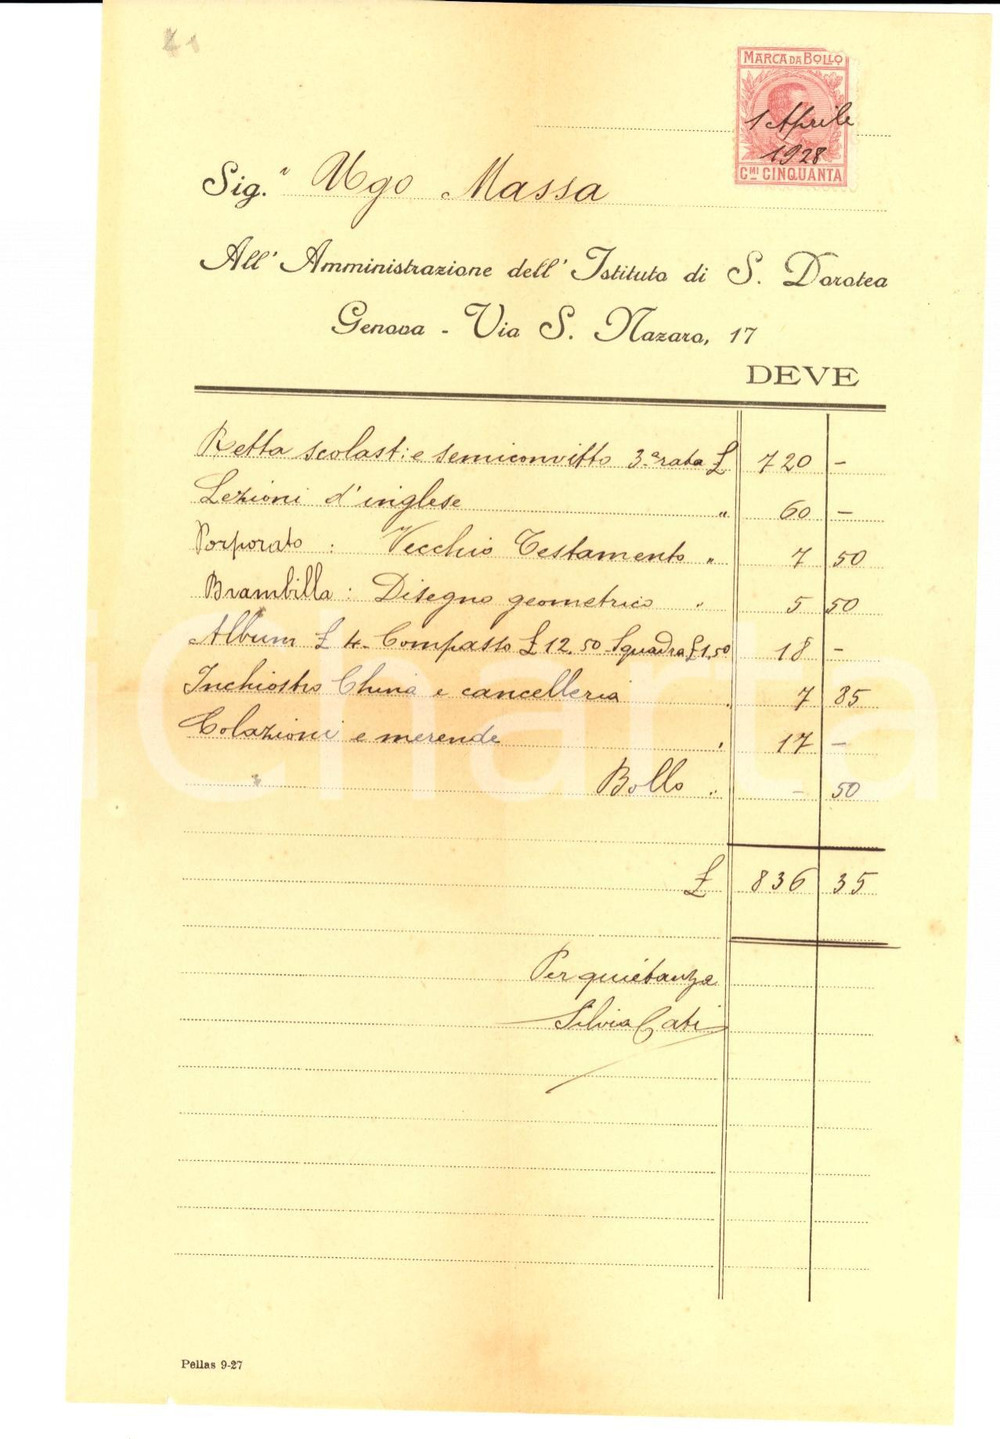 MARCA DA BOLLO
1 Aprile
1928
Cmi CINQUANTA
Sig.r Ugo Massa
All' Amministrazione dell' Istituto di S. Dorotea
Genova - Via S. Nazaro, 17
DEVE
Retta scolast: e semiconvitto 3.a rata £ 720 -
Lezioni d'inglese " 60 -
Porporato : Vecchio Testamento " 7 50
Brambilla : Disegno geometrico " 5 50
Album £ 4 - Compasso £ 12.50 Squadra £ 1,50 18 -
Inchiostro China e cancelleria " 7 85
Colazioni e merende " 17 -
Bollo " - 50
£ 836 35
Per quietanza
Silvia Cati
Pellas 9-27
Charta